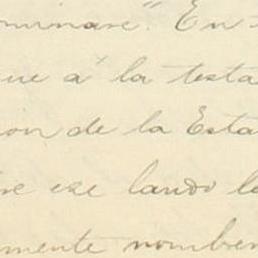 minase." En
que á la testa
ion de la Esta
se ese lando l
mente nombr